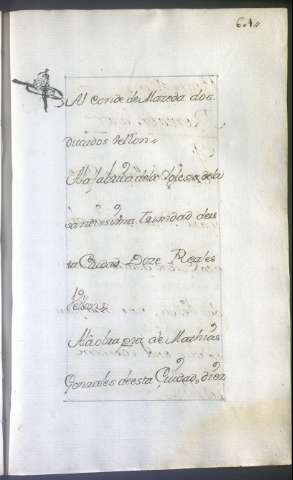 6.1.
Al Conde de Mazeda dos
ducados Vellon
A la fabrica de la Yglesia de la
santissima Trinidad de es
ta Ciudad Doze Reales
Vellon
A la obra pia de Mathias
Gonzales de esta Ciudad, diez